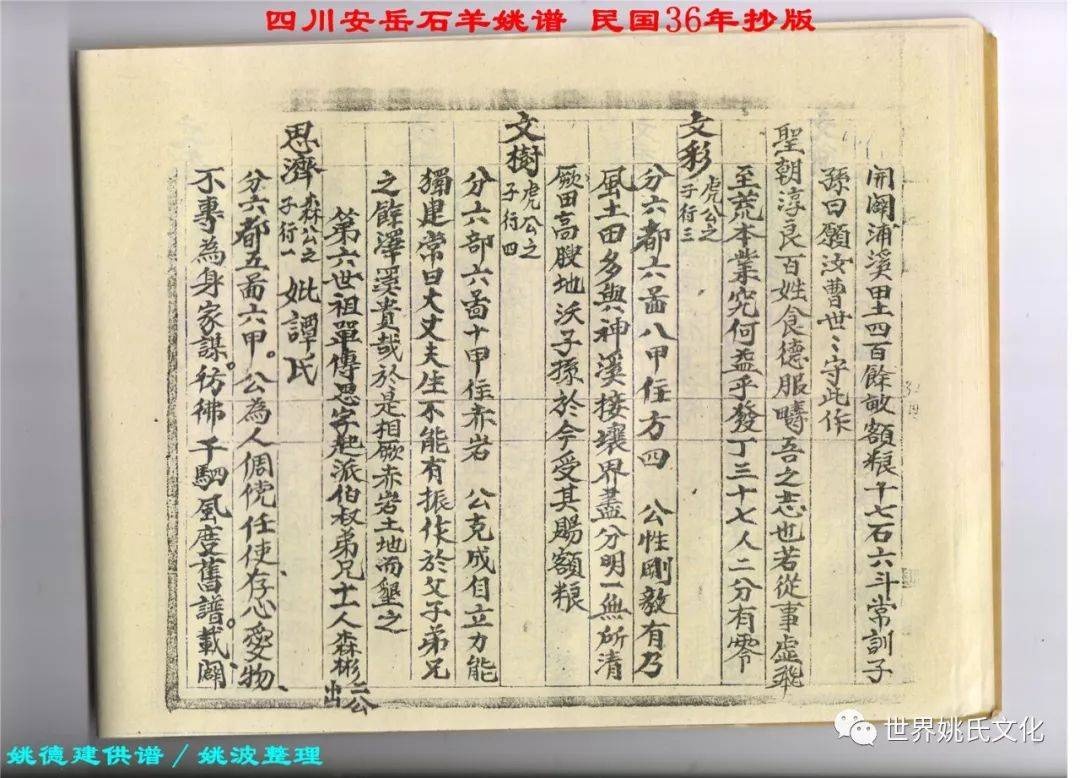 四川安岳石羊姚谱 民国36年抄版
開闢浦溪甲土四百餘畝額粮千七石六斗常訓子
孫曰願汝曹世〻守此作
聖朝淳良百姓食德服疇吾之志也若從事虛飛
至荒本業究何益乎發丁三十七人二分有零
文彩 虎公之子行三
分六都六啚八甲住方四 公性剛毅有乃
風土田多與神溪接壤界盡分明一無所清
厥田高腴地沃子孫於今受其賜額粮
文樹 虎公之子行四
分六部六啚十甲住赤岩 公克成自立力能
獨建常曰大丈夫生不能有振作於父子弟兄
之餘澤溪貴哉於是相厥赤岩土地而墾之
第六世祖單傳思字起派伯叔弟兄十一人森彬二公出
思濟 森公之子行一 妣譚氏
分六都五啚六甲。公為人倜儻任使存心愛物、
不專為身家謀。彷彿千駟風度舊譜。載闢
姚德建供谱／姚波整理
世界姚氏文化